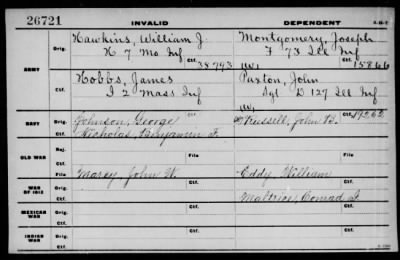 26721 INVALID DEPENDENT
ARMY
Orig. Hawkins, William J. Montgomery, Joseph
K 7 Mo Inf F 73 Ill Inf
Ctf. 38793 Ctf. 15866
Orig. Hobbs, James Paxton, John
I 2 Mass Inf Sgt D 127 Ill Inf
Ctf.
NAVY
Orig. Johnson, George Russell, John B. Ctf. 19262
Nicholas, Benjamin F.
Ctf.
OLD WAR
Rej.
Ctf. File File
WAR OF 1812
Orig. Marcy, John W. Eddy, William
Ctf. Conrad
MEXICAN WAR
Orig.
Ctf. Ctf.
INDIAN WAR
Orig.
Ctf. Ctf.